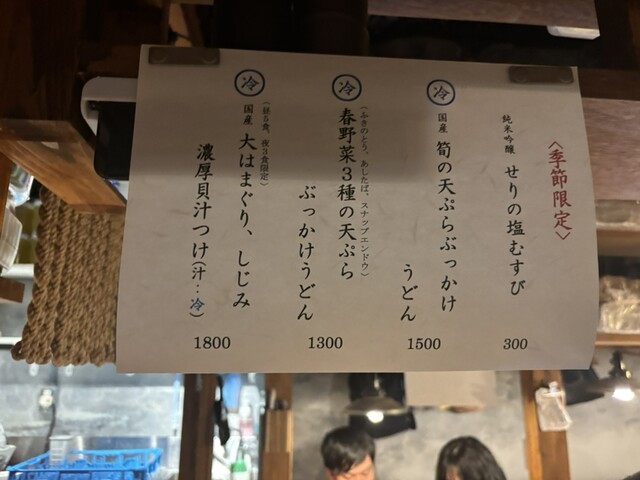 〈季節限定〉
純米吟醸 せりの塩むすび
300
冷
国産 筍の天ぷらぶっかけ
うどん
1500
冷
(ふきのとう、あしたば、スナップエンドウ)
春野菜3種の天ぷら
ぶっかけうどん
1300
冷
(昼5食、夜3食限定)
国産 大はまぐり、しじみ
濃厚貝汁つけ(汁:冷)
1800